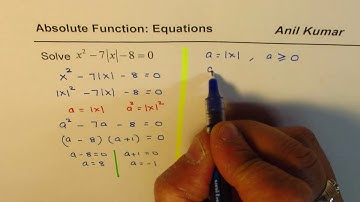 Absolute Function: Equations
Anil Kumar
Solve x² - 7|x| - 8 = 0
x² - 7|x| - 8 = 0
|x|² - 7|x| - 8 = 0
a = |x| a² = |x|²
a² - 7a - 8 = 0
(a - 8)(a + 1) = 0
a - 8 = 0 a + 1 = 0
a = 8 a = -1
a = |x| , a ≥ 0
a